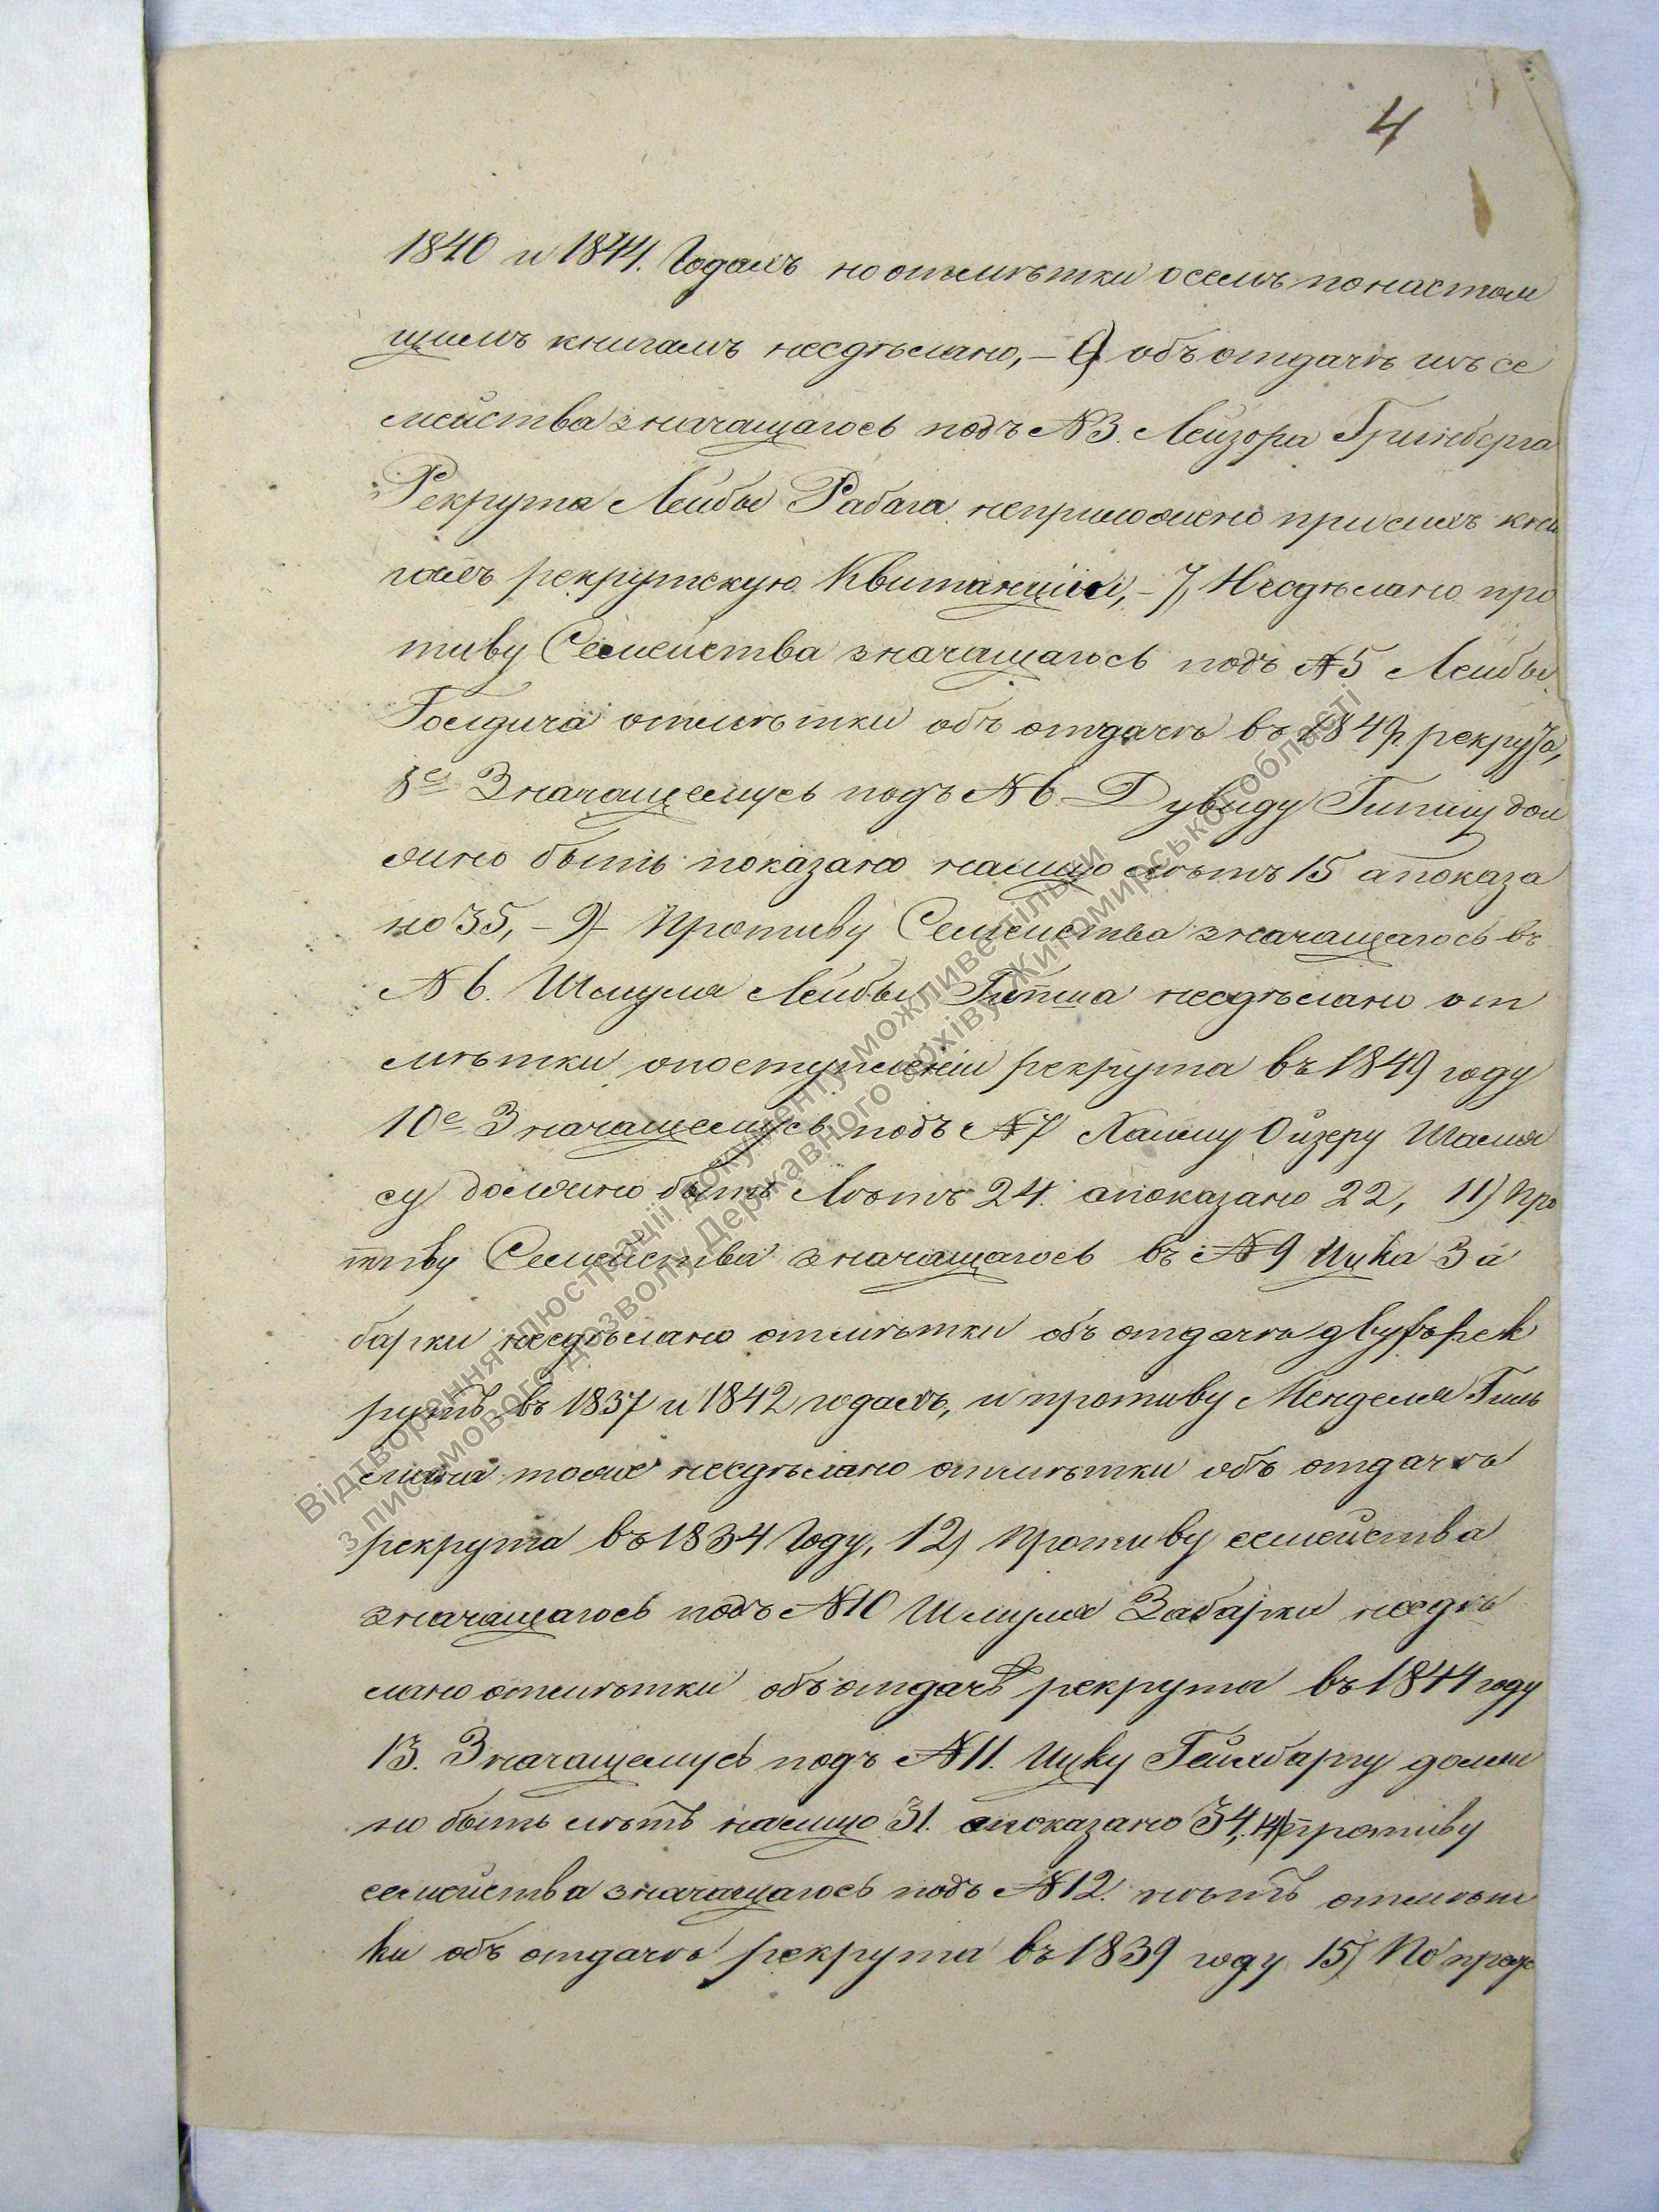 4
1840 и 1844. Годахъ но отмѣтки осемъ понастоя
щимъ книгамъ несдѣлано, – 6) объ отдачѣ изъ се
мейства значащагось подъ №3. Лейзора Гринберга
Рекрута Лейбы Рабага неприложено при сихъ кни
гахъ рекрутскую Квитанцію, – 7, Несдѣлано про
тиву Семейства значащагось подъ №5 Лейбы
Голдича отмѣтки объ отдачѣ въ 1849. рекрута,
8е Значащемусь подъ №6 Дувиду Гипшу дол
жно быть показано налицо лѣтъ 15 апоказа
но 35, – 9) Противу Семейства значащагось въ
№6. Шмуля Лейбы Гипша несдѣлано от
мѣтки опоступленіи рекрута въ 1849 году
10е Значащемусь подъ №7 Хаиму Ойзеру Шамя
су должно быть Лѣтъ 24. апоказано 22, 11) Про
тиву Семейства значащагось въ №9 Ицка За
барки несдѣлано отмѣтки объ отдачѣ двухъ рек
рутъ въ 1837 и 1842 годахъ, и противу Менделя Гиль
мана тоже несдѣлано отмѣтки объ отдачѣ
рекрута въ 1834 Году, 12) Противу семейства
значащагось подъ №10 Шмуля Забарки несдѣ
лано отмѣтки объ отдачѣ рекрута въ 1844 году
13. Значащемусь подъ №11. Ицку Геймбаргу долж
но быть лѣтъ налицо 31. апоказано 34, 14) противу
семейства значащагось подъ №12. нѣтъ отмѣт
ки объ отдачѣ рекрута въ 1839 году 15) По
Відтворення ілюстрації документу можливе тільки
з письмового дозволу Державного архіву Житомирської області